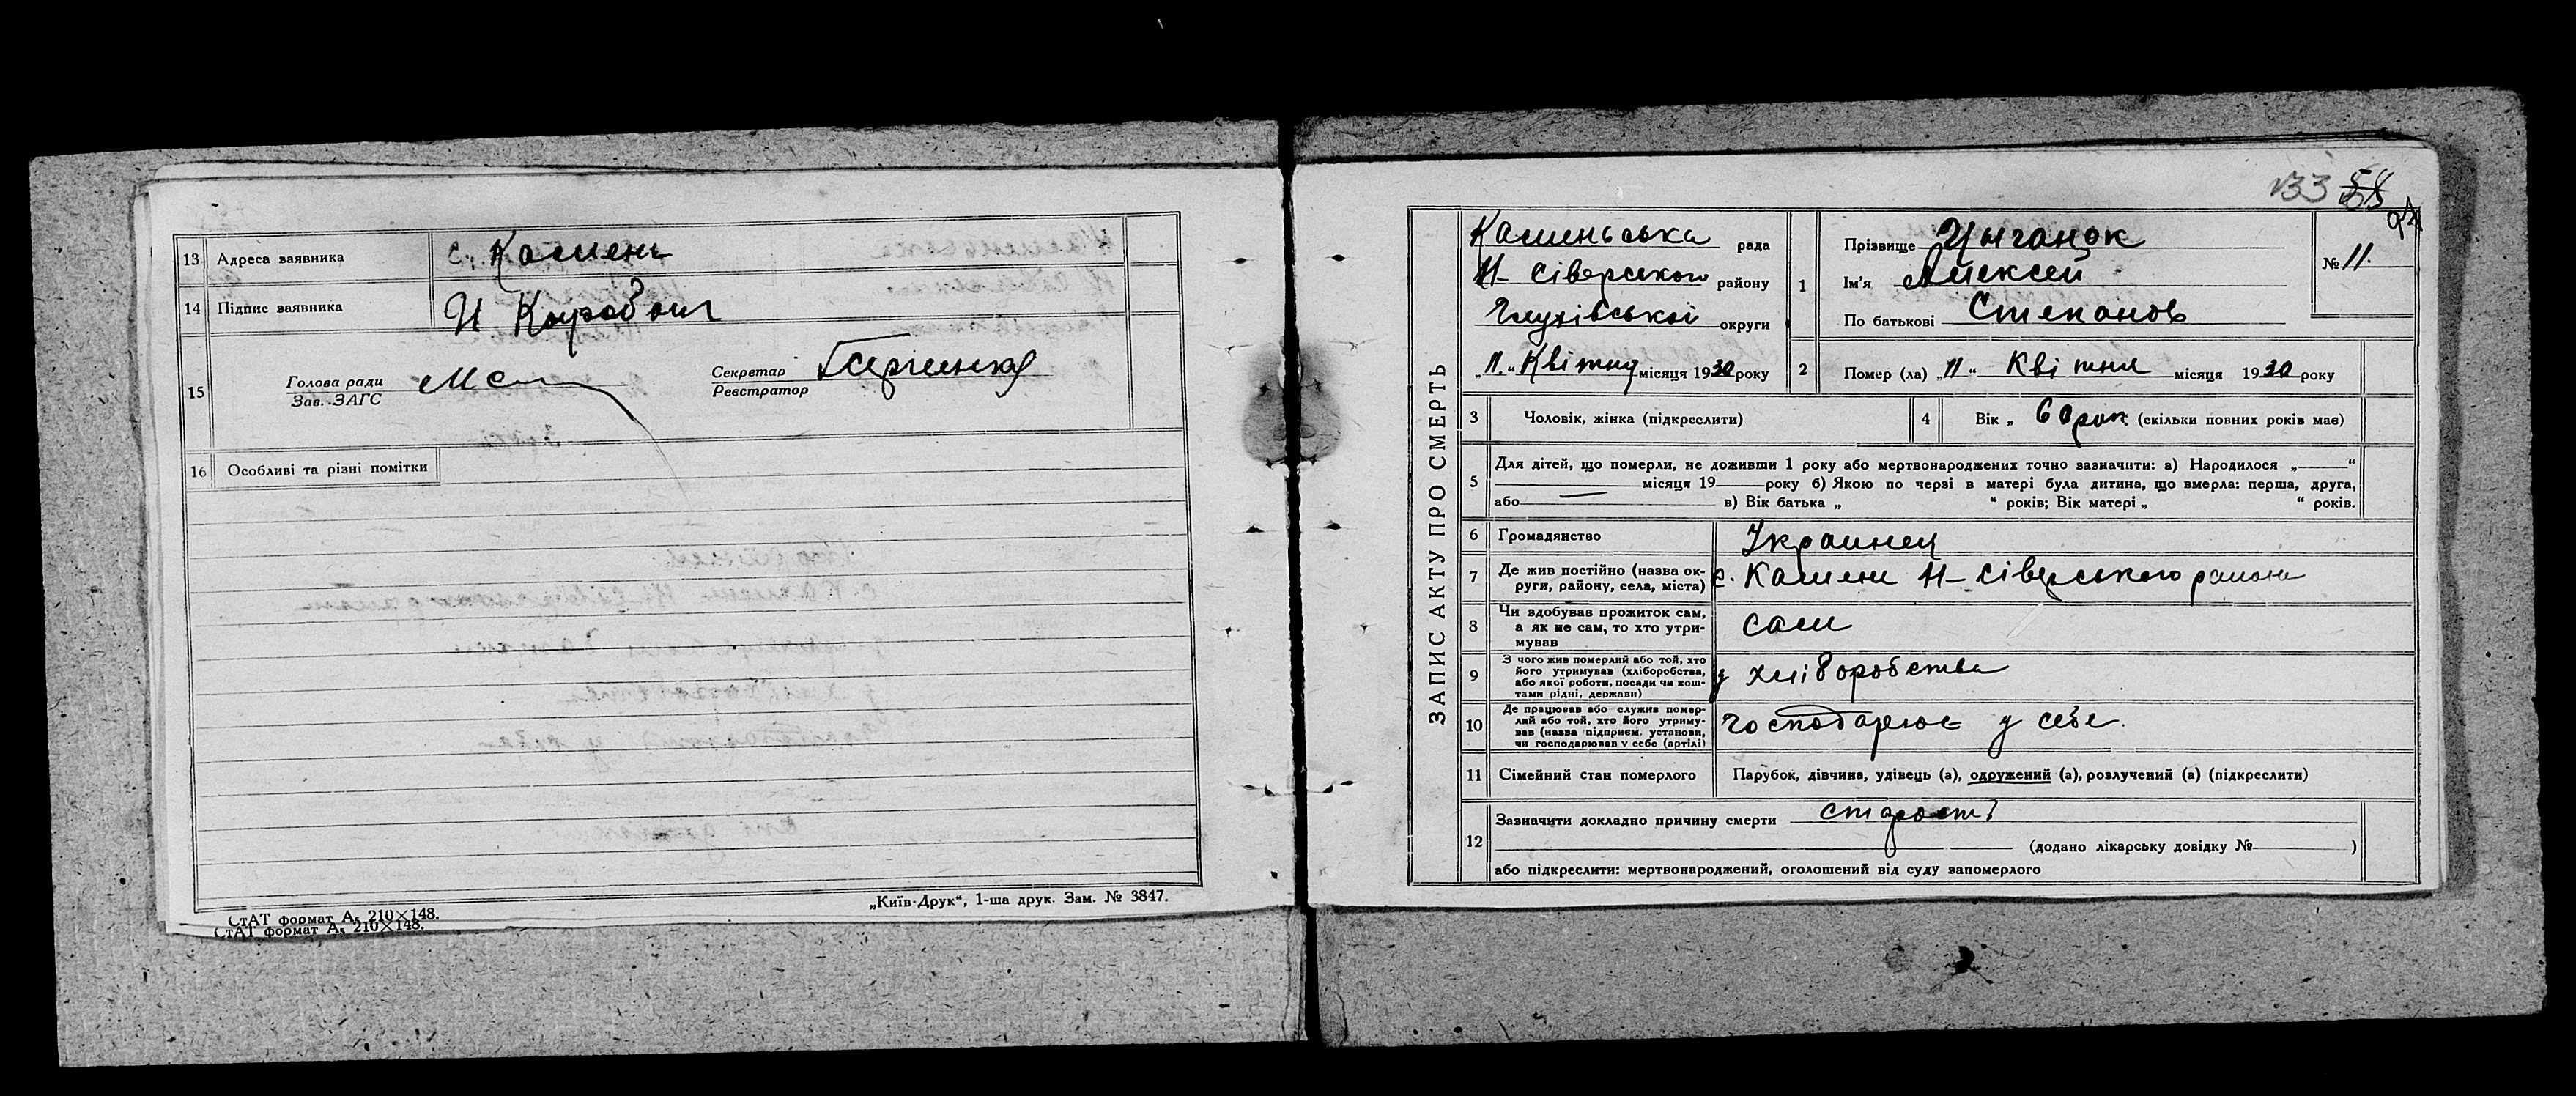 13 Адреса заявника с. Камень
14 Підпис заявника И Коробок
15 Голова ради
Зав. ЗАГС
Секретар
Реєстратор
16 Особливі та різні помітки
„Київ-Друк“, 1-ша друк. Зам. № 3847.
СтАТ формат А₅ 210×148.
СтАТ формат А₅ 210×148.
133 58
ЗАПИС АКТУ ПРО СМЕРТЬ
Каменьська рада
Н-Сіверського району
Глухівської округи
„11.“ Квітня місяця 1930 року
1 Прізвище Цыганок
Ім'я Алексей
По батькові Степанов
№ 11.
2 Помер (ла) „11“ Квітня місяця 1930 року
3 Чоловік, жінка (підкреслити)
4 Вік „ 60 рок. (скільки повних років має)
5 Для дітей, що померли, не доживши 1 року або мертвонароджених точно зазначити: а) Народилося „——“
—— місяця 19—— року б) Якою по черзі в матері була дитина, що вмерла: перша, друга,
або —— в) Вік батька „ “ років; Вік матері „ “ років.
6 Громадянство Украинец
7 Де жив постійно (назва ок-
руги, району, села, міста) с. Камень Н-Сіверського района
8 Чи здобував прожиток сам,
а як не сам, то хто утри-
мував
сам
9 З чого жив померлий або той, хто
його утримував (хліборобства,
або якої роботи, посади чи кош-
тами рідні, держави)
у хліборобства
10 Де працював або служив помер-
лий або той, хто його утриму-
вав (назва підприєм. установи,
чи господарював у себе (артілі)
господарює у себе.
11 Сімейний стан померлого Парубок, дівчина, удівець (а), одружений (а), розлучений (а) (підкреслити)
12 Зазначити докладно причину смерти старость
(додано лікарську довідку № )
або підкреслити: мертвонароджений, оголошений від суду запомерлого